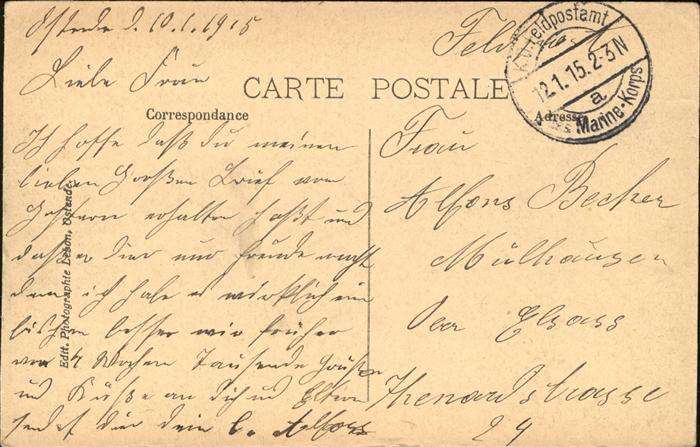 Ostende d. 10.1.1915
Liebe Frau
Ich hoffe daß du meinen
lieben großen Brief von
Gestern erhalten hast und
daß er dir nur Freude macht
denn ich habe es wirklich ein
bischen besser wie früher
vor 4 Wochen Tausende Grüße
und Küße an dich und Eltern
sendet dir dein l. Alfons
CARTE POSTALE
Correspondance
Adresse
Edit. Photographie Lebon, Ostende.
Feldpost
Kais. Feldpostamt
12.1.15.2-3N
a
Marine-Korps
Frau
Alfons Becker
Mülhausen
Ober Elsass
Thenardstrasse
24